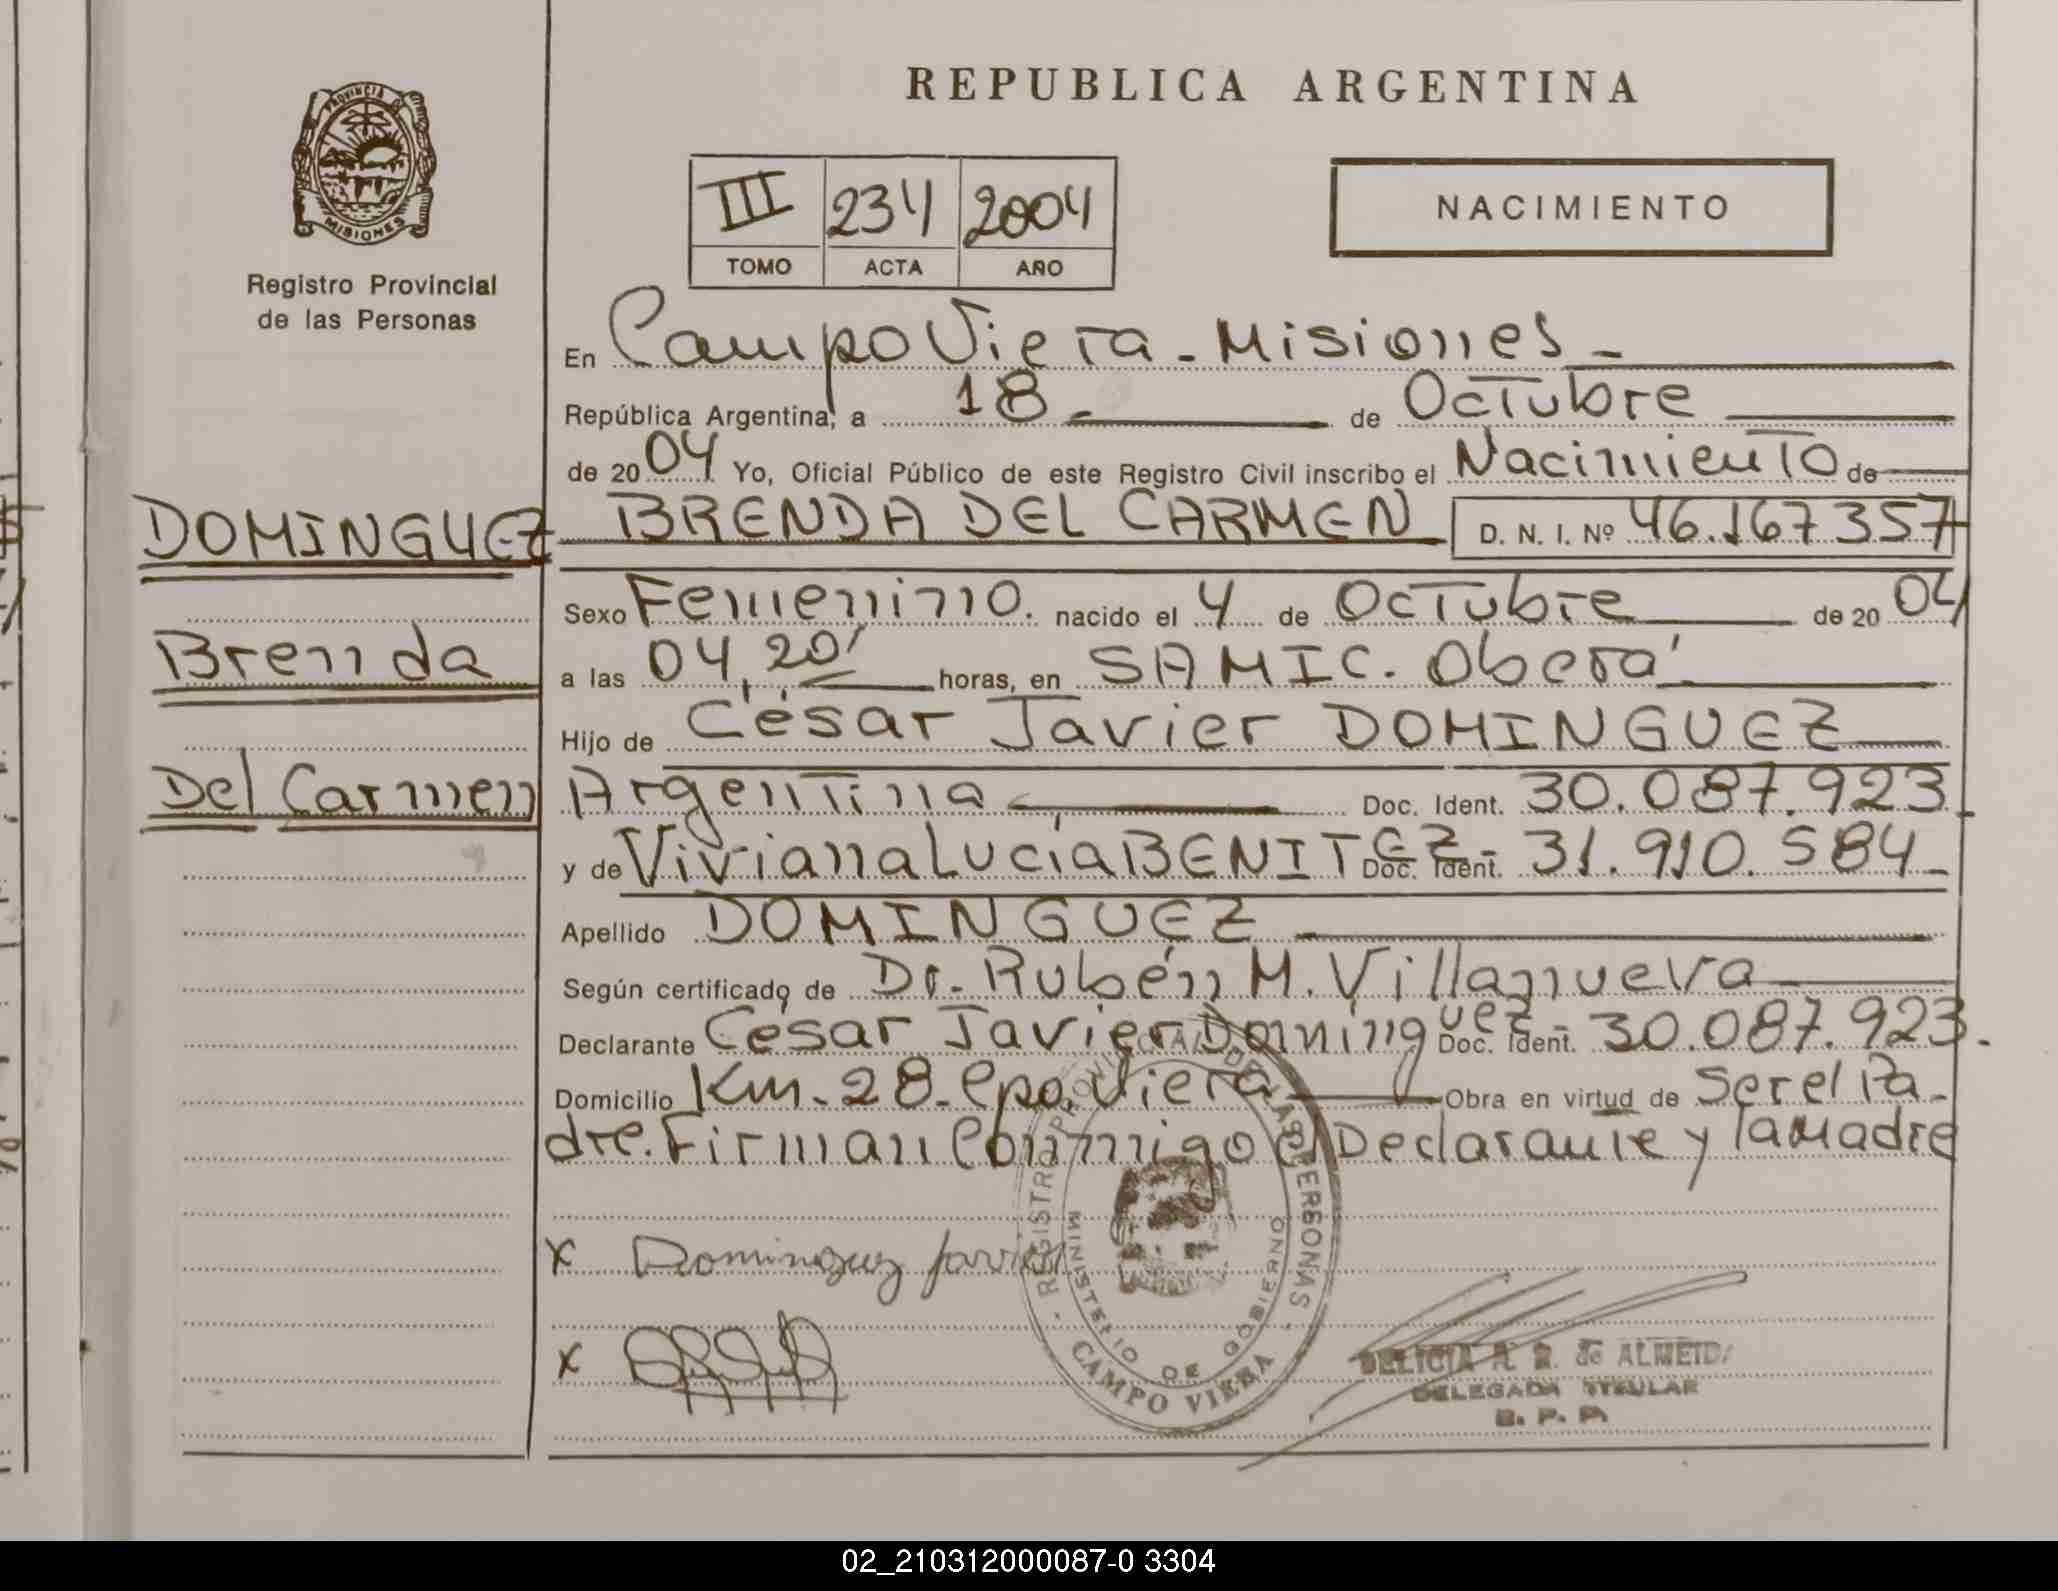 REPUBLICA ARGENTINA
PROVINCIA
MISIONES
Registro Provincial
de las Personas
III 234 2004
TOMO ACTA AÑO
NACIMIENTO
En Campo Viera - Misiones -
República Argentina, a 18 - de Octubre
de 2004 Yo, Oficial Público de este Registro Civil inscribo el Nacimiento de
DOMINGUEZ BRENDA DEL CARMEN D. N. I. Nº 46.167357
Sexo Femenino. nacido el 4 de Octubre de 2004
Brenda
a las 04,20' horas, en SAMIC. Oberá
Hijo de César Javier DOMINGUEZ
Del Carmen
Argentina Doc. Ident. 30.087.923-
y de Viviana Lucía BENITEZ- Doc. Ident. 31.910.584-
Apellido DOMINGUEZ
Según certificado de Dr. Rubén M. Villanueva
Declarante César Javier Dominguez - Doc. Ident. 30.087.923.
Domicilio Km. 28 - Cpo. Viera Obra en virtud de Ser el Pa-
dre. Firman Conmigo el Declarante y la Madre
x Dominguez Javier
x
REGISTRO PROVINCIAL DE LAS PERSONAS
MINISTERIO DE GOBIERNO
CAMPO VIERA
DELICIA R. de ALMEIDA
DELEGADA TITULAR
R. P. P.
02_210312000087-0 3304